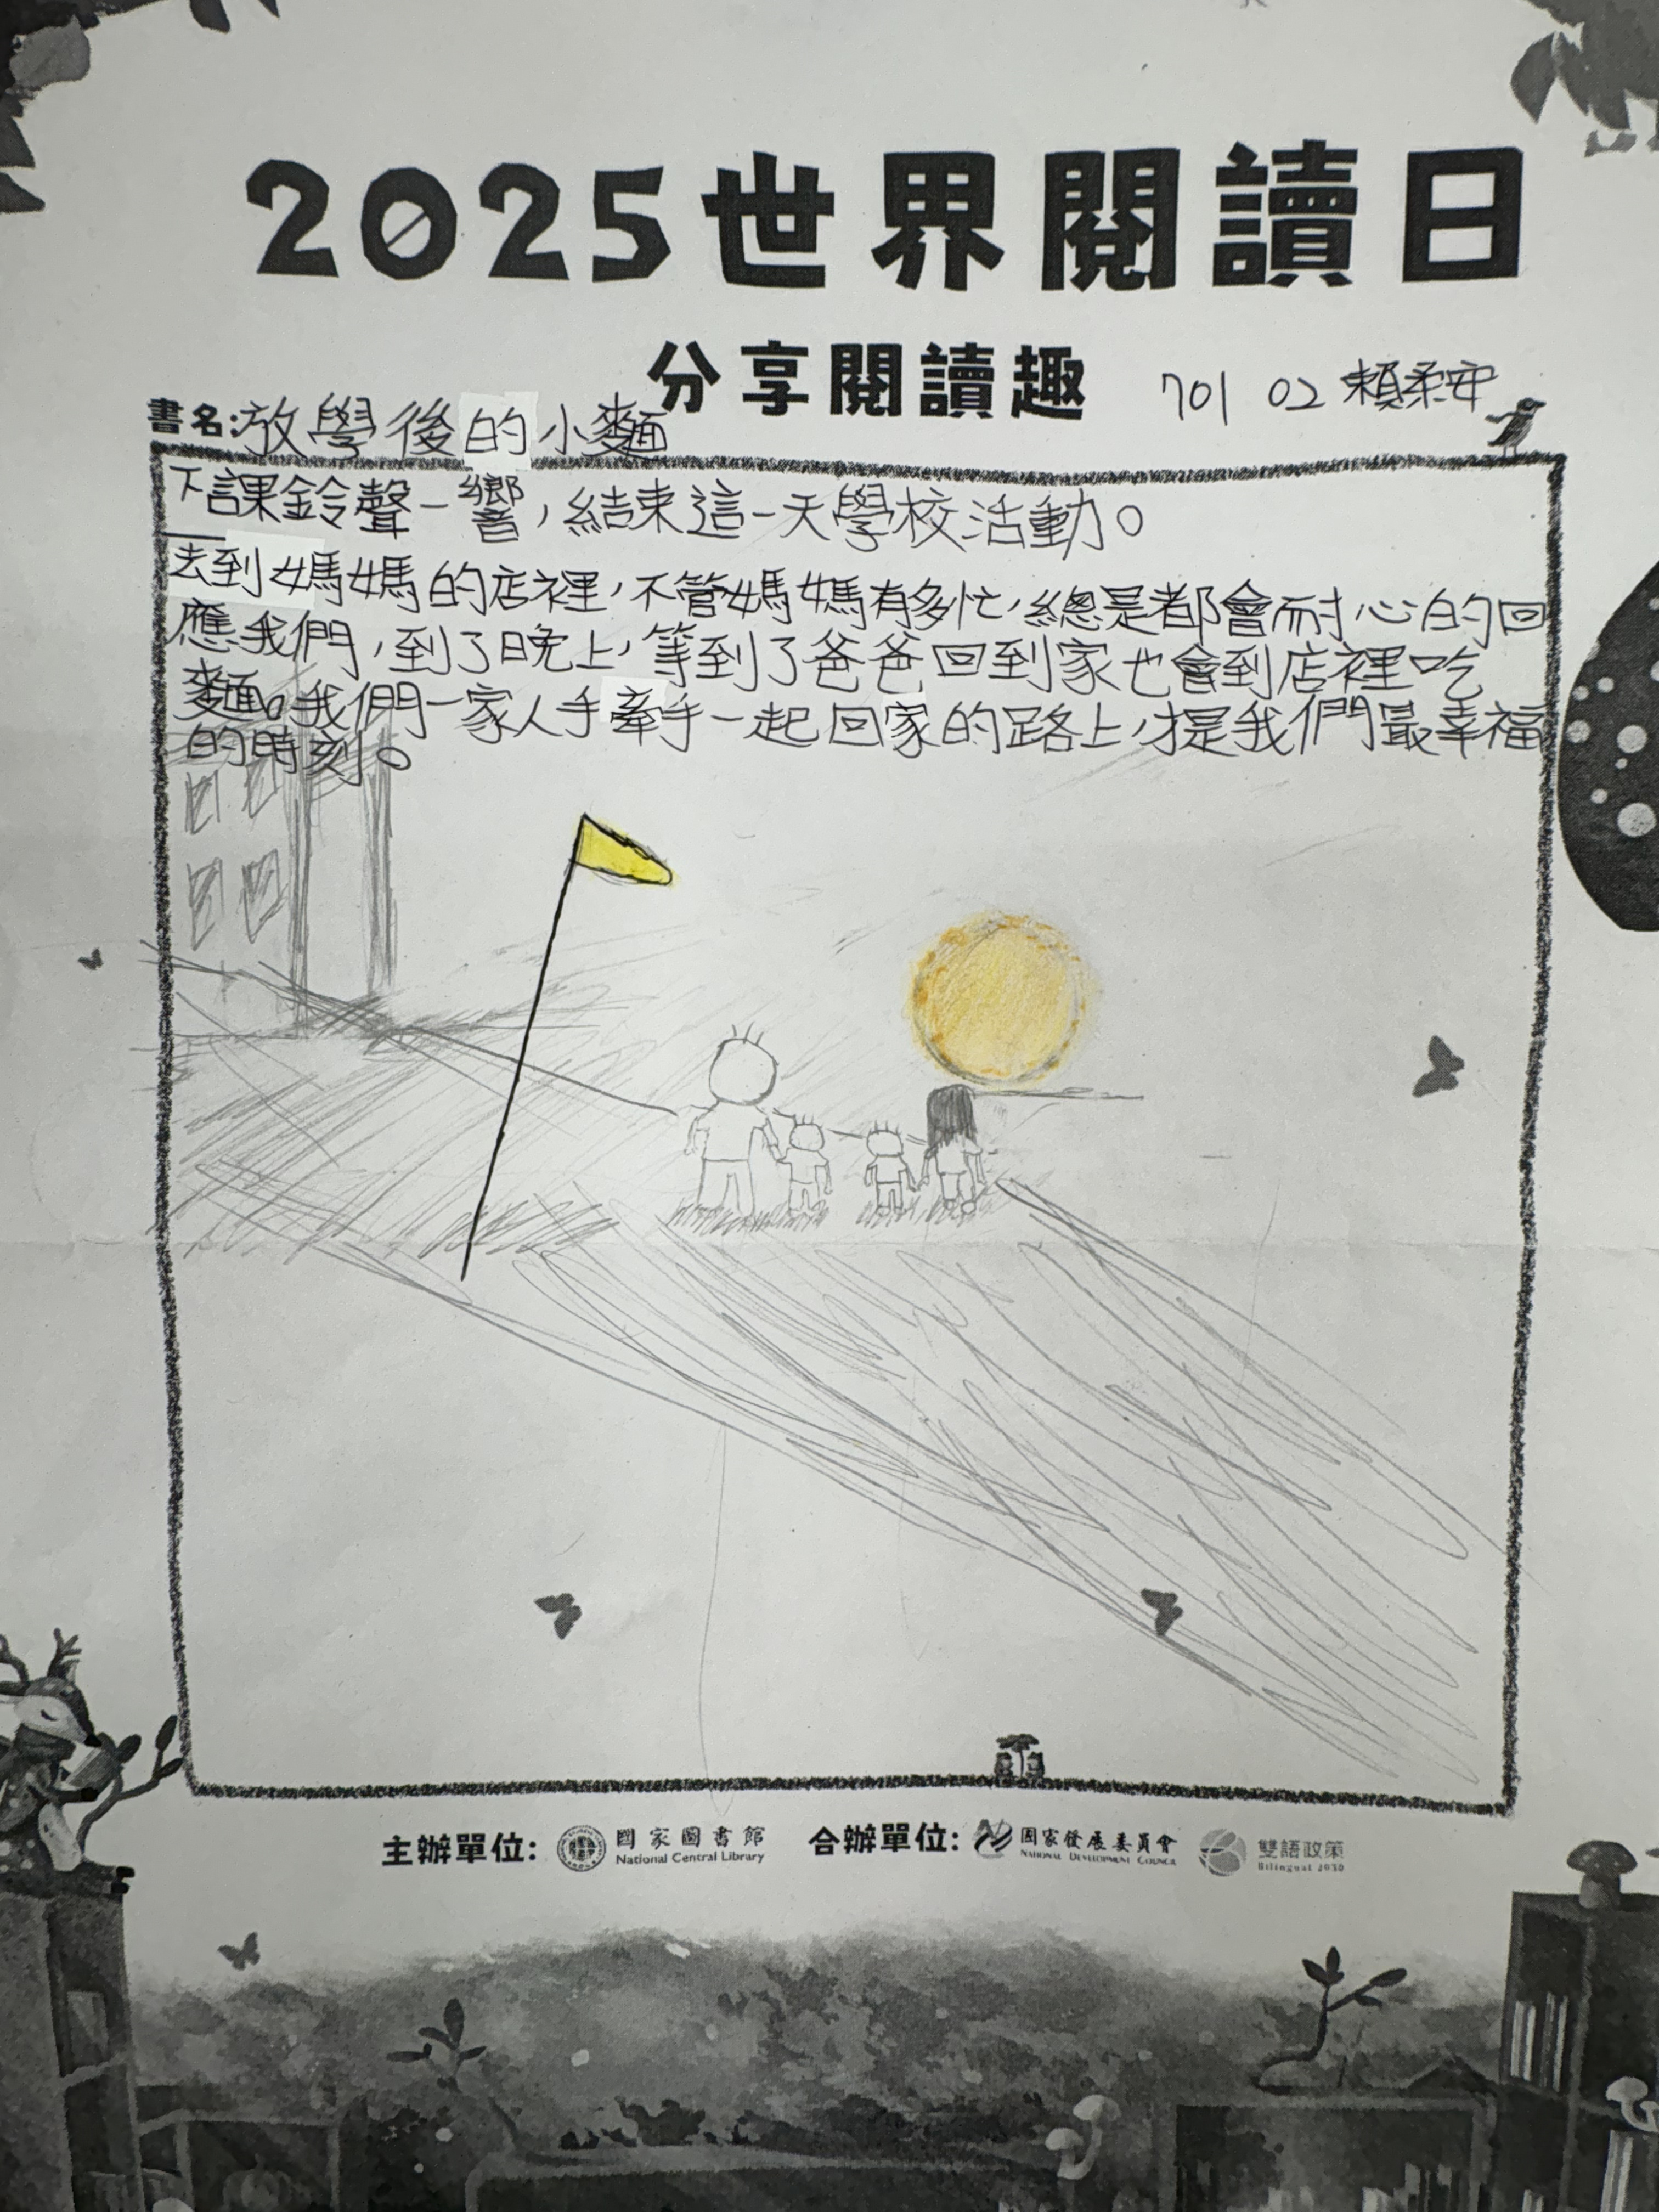 2025世界閱讀日
分享閱讀趣
701 02 賴柔安
書名:放學後的小麵
下課鈴聲一響,結束這一天學校活動。
去到媽媽的店裡,不管媽媽有多忙,總是都會耐心的回
應我們,到了晚上,等到了爸爸回到家也會到店裡吃
麵。我們一家人手牽手一起回家的路上,才是我們最幸福
的時刻。
主辦單位: 國家圖書館 National Central Library 合辦單位: 國家發展委員會 National Development Council 雙語政策 Bilingual 2030